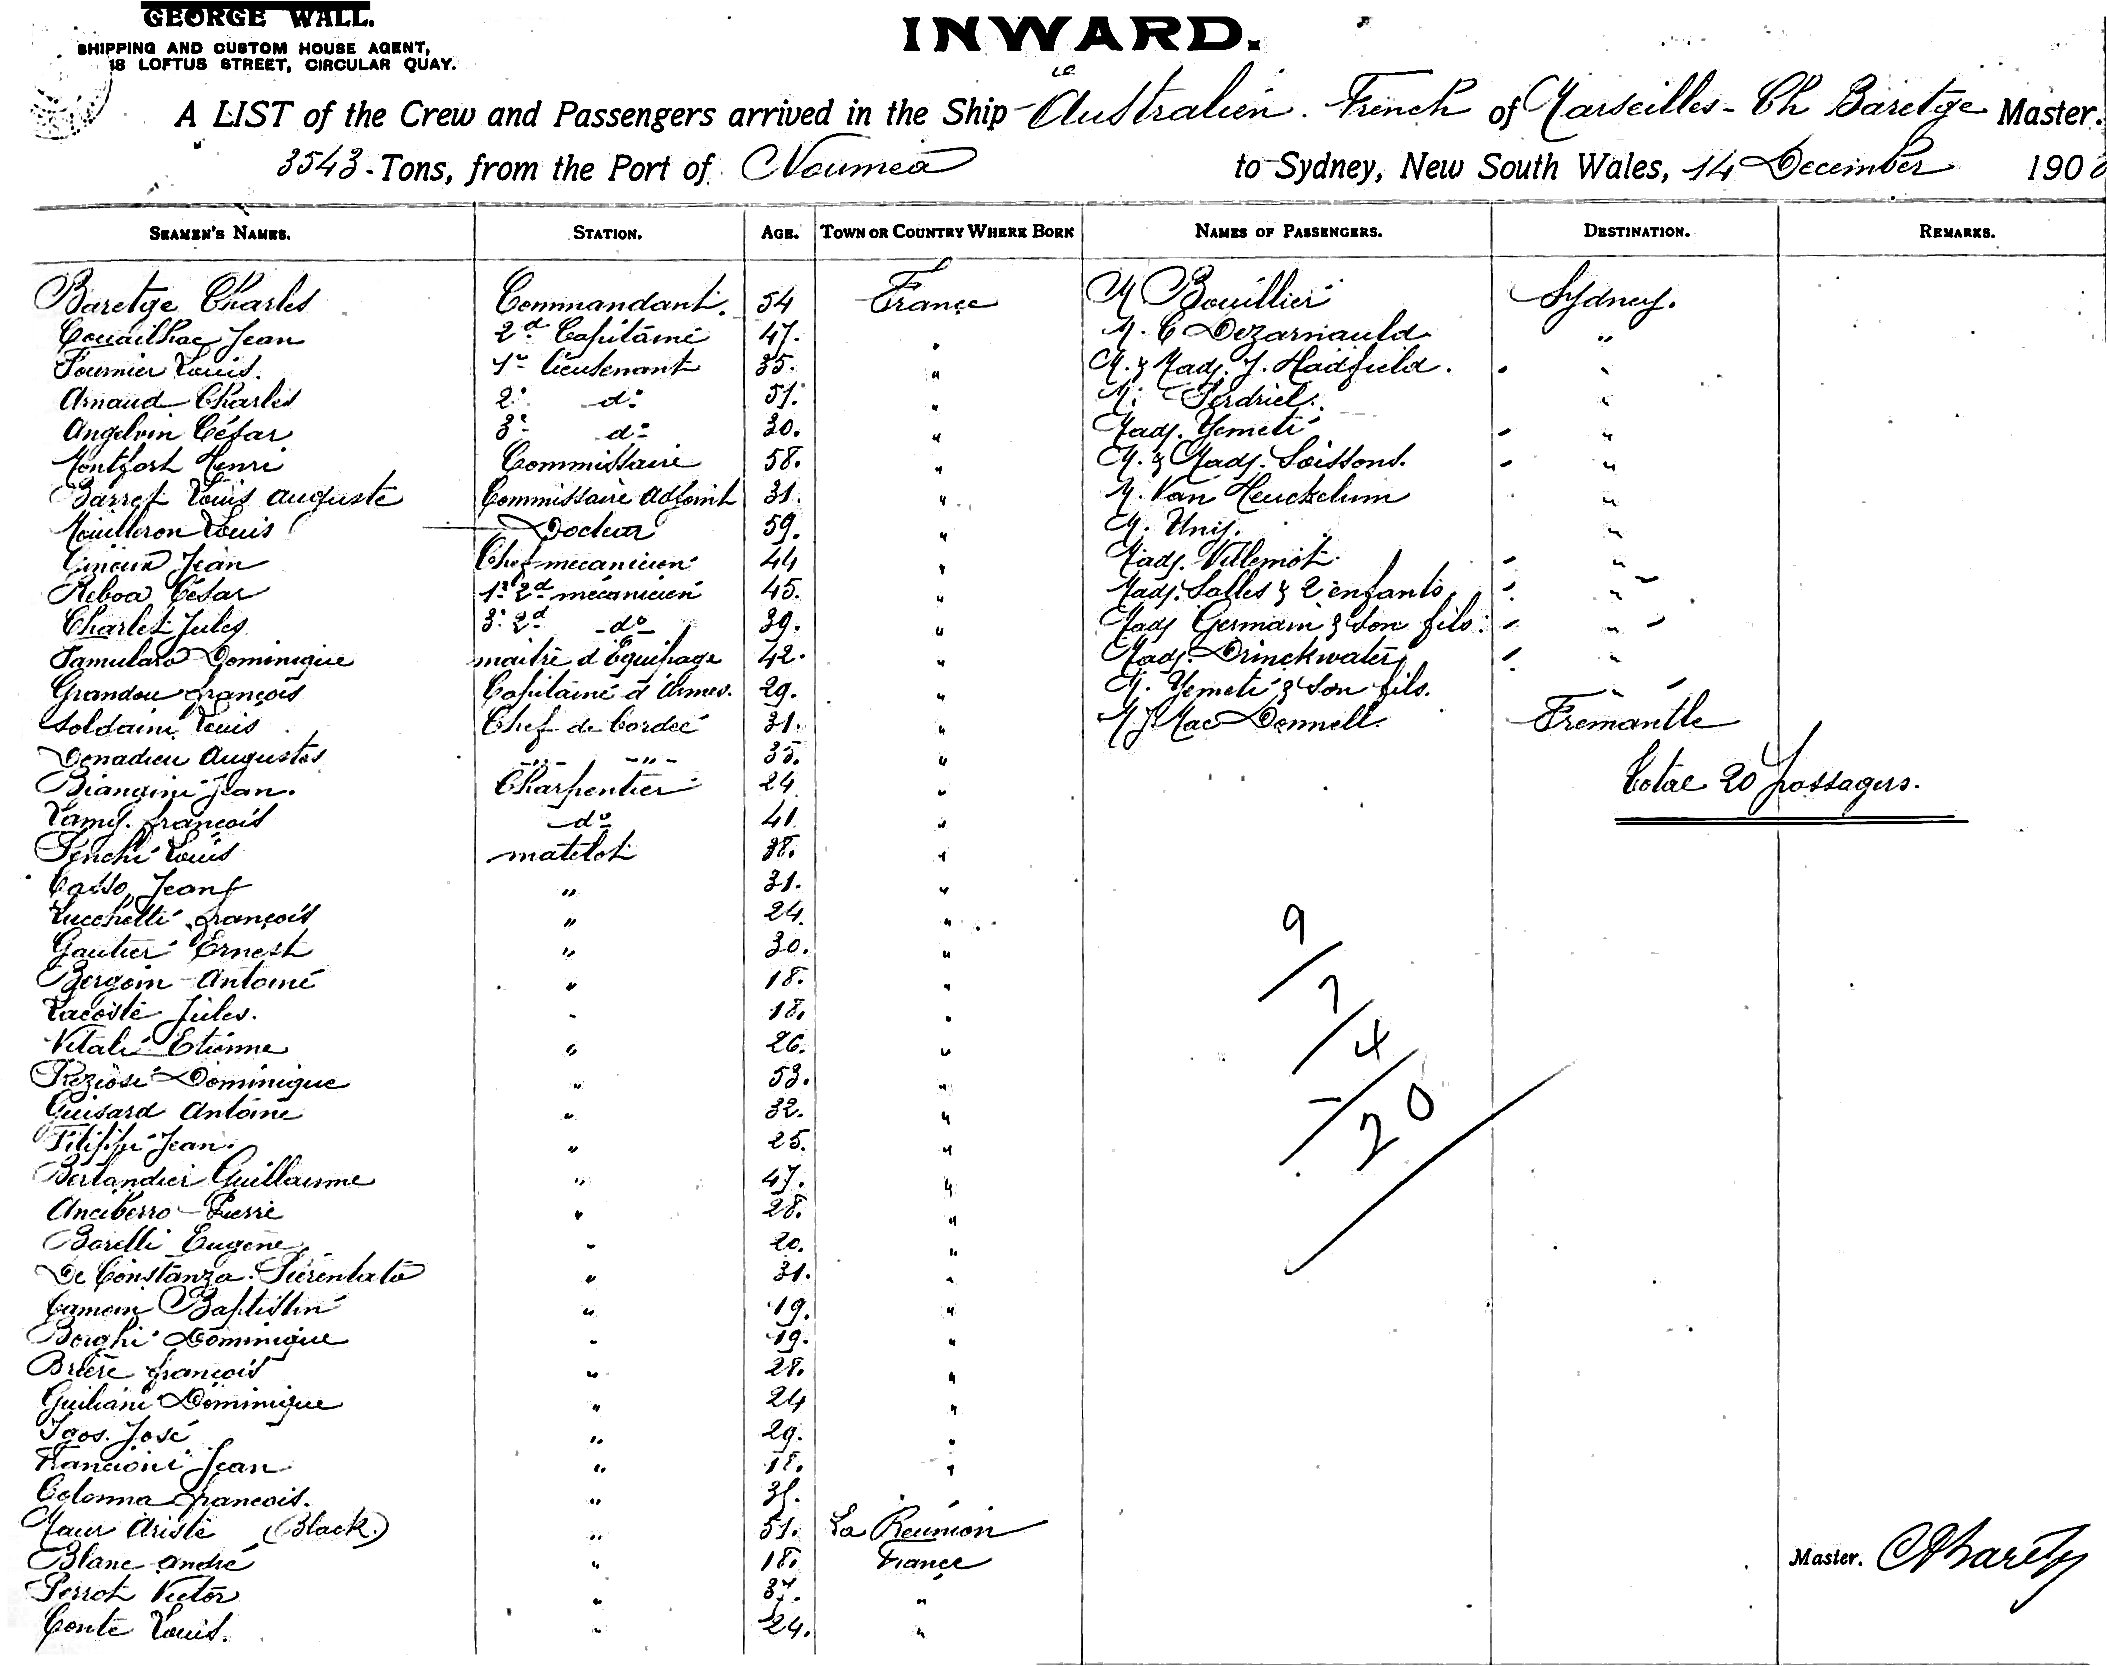 GEORGE WALL.
SHIPPING AND CUSTOM HOUSE AGENT,
18 LOFTUS STREET, CIRCULAR QUAY.
INWARD.
A LIST of the Crew and Passengers arrived in the Ship Australien. French of Marseilles - Ch Baretge Master.
3543 - Tons, from the Port of Noumea to Sydney, New South Wales, 14 December 190
SEAMEN'S NAMES. STATION. AGE. TOWN OR COUNTRY WHERE BORN NAMES OF PASSENGERS. DESTINATION. REMARKS.
Baretge Charles Commandant. 54 France M Bouillier Sydney.
Couailhac Jean 2d Capitaine 47. " M. C Dezarnauld "
Fournier Louis. 1er lieutenant 35. " M. & Mad. J. Hadfield. "
Arnaud Charles 2e do 51. " M. "
Angelvin César 3e do 30. " Mad. Yemeti "
Montfort Henri Commissaire 58. " M. & Mad. Soissons. "
Barret Louis Auguste Commissaire Adjoint 31. " M. Van Heuckelum "
Mouilleron Louis Docteur 59. " M. "
Jean Chef mécanicien 44 " Mad. Villemot. "
Reboa César 1er 2d mécanicien 45. " Mad. Salles & 2 enfants "
Charlet Jules 3e 2d do 39. " Mad Germain & son fils. "
Tamularo Dominique maitre d'Equipage 42. " Mad. Drinckwater "
Grandou François Capitaine d'Armes. 29. " M. Yemeti & son fils. "
Soldaini Louis Chef de bordée 31. " M J Mac Donnell. Fremantle
Donadieu Augustes " " 35. "
Biangini Jean. Charpentier 24 " Total 20 passagers.
Lamy. François do 41. "
Louis matelot 38. "
Casso Jean " 31. "
Lucchetti François " 24. "
Gautier Ernest " 30. "
Bergoin Antoine " 18. "
Lacoste Jules. " 18. "
Vitali Etienne " 26. "
Preziosi Dominique " 53. "
Guisard Antoine " 32. "
Filippi Jean. " 25. "
Bertandier Guillaume " 47. "
Anciberro Pierre " 28. "
Borelli Eugène " 20. "
De Constanzo " 31. "
Camoin Baptistin " 19. "
Borghi Dominique " 19. "
Brière François " 28. "
Guiliani Dominique " 24 "
Igos. José " 29. "
Francioni Jean " 18. "
Colonna François. " "
Maur Ariste (Black.) " 51. La Réunion
Blanc André " 18. France
Perrot Victor " 37. "
Conte Louis. " 24. "
9
7
4
20
Master. Ch Baretge